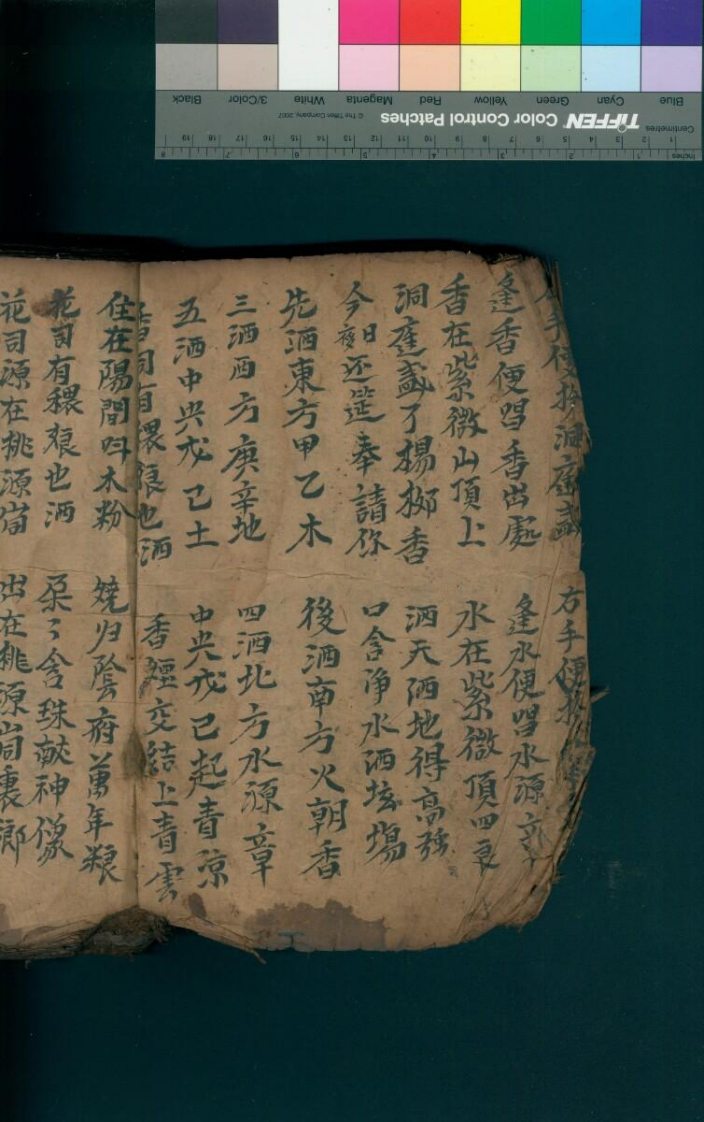 手便 洞庭盞 右手便
逢香便唱香出處 逢水便唱水源章
香在紫微山頂上 水在紫微頂四良
洞庭盞了楊柳香 洒天洒地得高強
今日夜还筵奉請你 口含淨水洒坛場
先洒東方甲乙木 後洒南方火朝香
三洒西方庚辛地 四洒北方水源章
五洒中央戊己土 中央戊己起青凉
司有 也洒 香烟交結上青雲
住在陽間呌木粉 燒归陰府萬年粮
花司有猥狼也洒 朵〻含珠献神像
花司源在桃源峝 出在桃源峝裏鄉
TIFFEN Color Control Patches
© The Tiffen Company, 2007
Centimetres
Inches
Blue Cyan Green Yellow Red Magenta White 3/Color Black
1 2 3 4 5 6 7 8 9 10 11 12 13 14 15 16 17 18 19
2 3 4 5 6 7 8